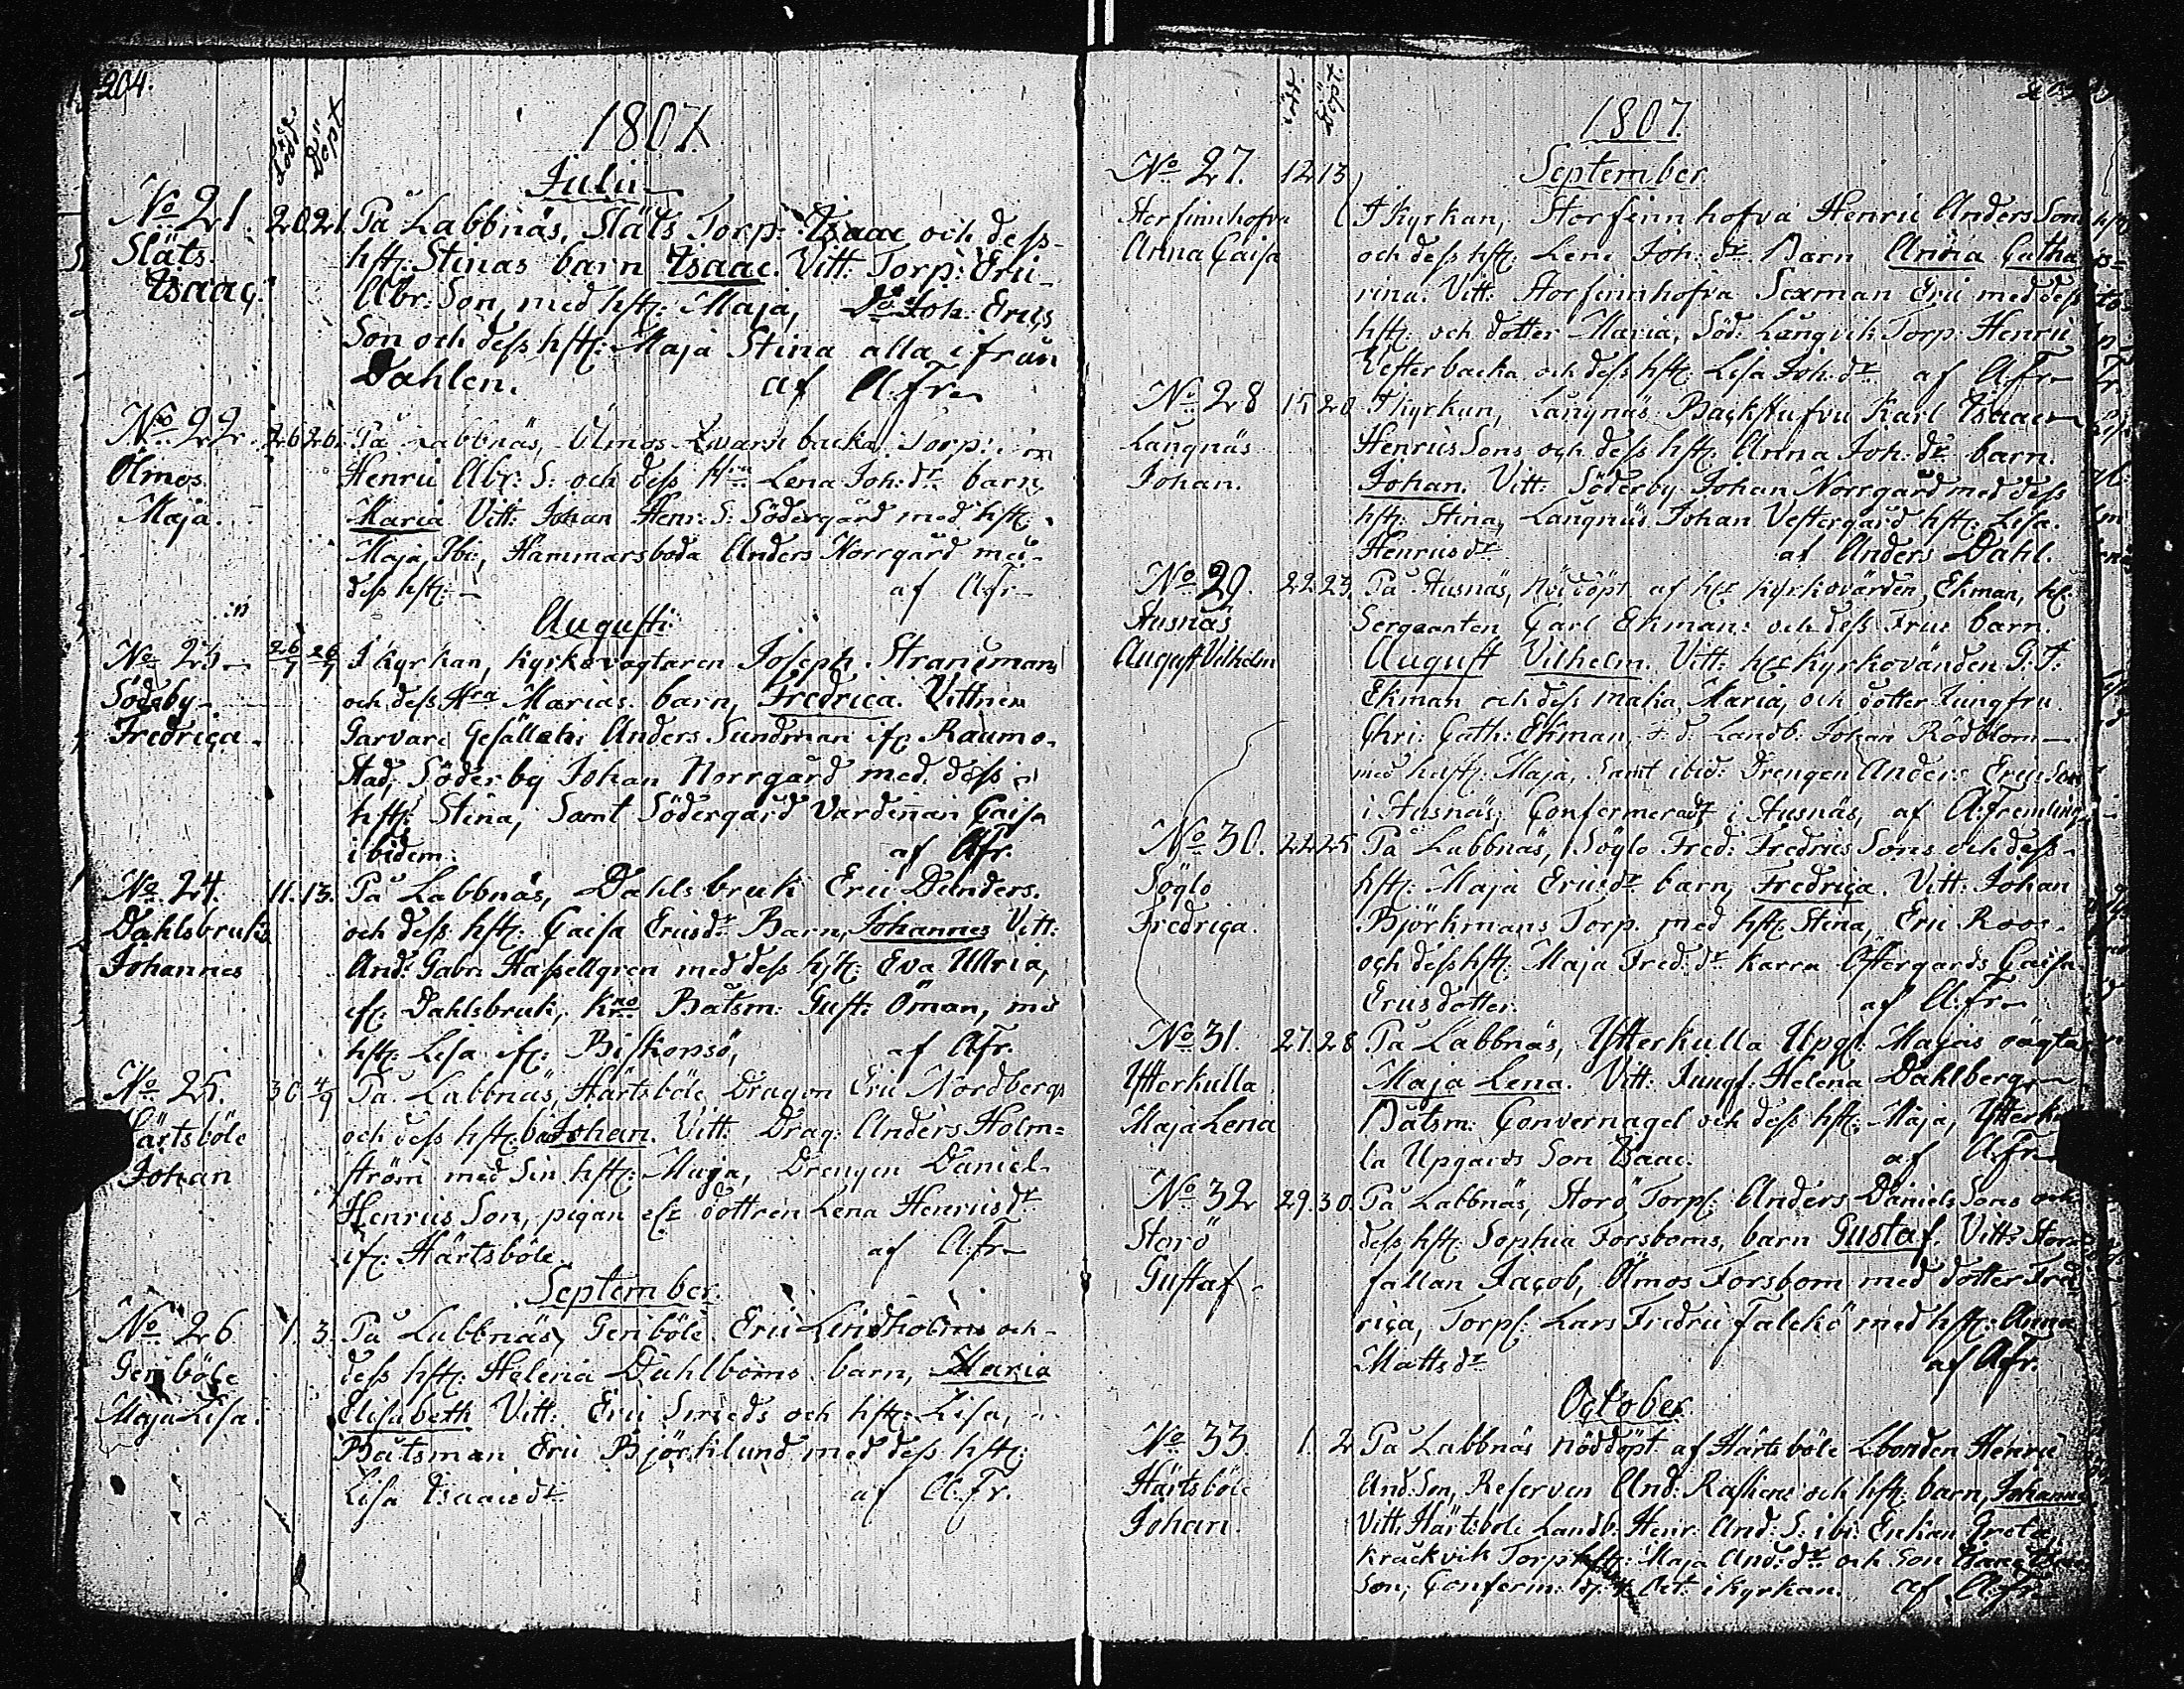 204.
Född
Döpt
1807.
Julii
No 21. 20. 21. På Labbnäs, Släts Torp: Isaac och dess
Släts hstr: Stinas barn Isaac. Vitt: Torp: Eric
Isaac. Abr: Son, med hstr: Maja, Do Joh: Erics
Son och dess hstr: Maja Stina alla ifrån
Dahlen. af A.Fr.
No 22. 26 26. På Labbnäs, Ölmos Torp:
Ölmos Henric Abr: S: och dess Lena Joh: dr barn
Maja. Maria Vitt: Johan Henr: S: Södergård med hstr:
Maja, Ibi:, Hammarsboda Anders Norrgård med
dess hstr: af A.fr
Augusti
No 23 26/7 26/7 I kyrkan, kyrkovagtaren Joseph Strandmans
Söderby och dess Marias barn, Fredrica. Vittnen
Fredrica. Garvare Gesällen Anders Sundman ifr. Raumo
Stad, Söderby Johan Norrgård med dess
hstr: Stina, Samt Södergård Värdinnan Caisa
ibidem. af AFr.
No 24. 11. 13. På Labbnäs, Dahls bruk Eric Dunders.
Dahlsbruks och dess hstr: Caisa Ericsdr Barn, Johannes Vitt:
Johannes And: Gabr: Hassellgren med dess hstr: Eva Maria,
ifr: Dahlsbruk, Båtsm: Gust: Öman, med
hstr: Lisa ifr: Biskopsö, af AFr.
No 25. 30 4/9 På Labbnäs, Härtsböle Dragon Eric Nordbergs
Härtsböle och dess hstr: Johan. Vitt: Drag: Anders Holm=
Johan ström med Sin hstr: Maja, Drengen Daniel
Henrics Son, pigan dottren Lena Henricsdr
ifr: Härtsböle. af A.fr
September.
No 26 1. 3. På Labbnäs, Genböle Eric Lindholms och
Genböle dess hstr: Helena Dahlboms barn, Maria
Maja Lisa. Elisabeth Vitt: Eric Smeds och hstr: Lisa,
Båtsman Eric Björklund med dess hstr:
Lisa Isaacsdr af A.fr.
född
Döpt
1807.
September
No 27. 12 13
Storfinnhofva I kyrkan, Storfinnhofva Henric Anders Sons
Anna Caisa och dess hstr: Lena Joh: dr Barn Anna Catha
rina. Vitt: Storfinnhofva Sexman Eric med dess
hstr: och dotter Maria, Söd: Långvik Torp: Henric
Vesterbacka och dess hstr: Lisa Joh: dr af A.Fr
No 28 15 20 I kyrkan, Långnäs Backstufvu Karl Isaac
Långnäs Henrics Sons och dess hstr: Anna Joh: dr barn.
Johan. Johan. Vitt: Söderby Johan Norrgård med dess
hstr: Stina, Långnäs Johan Vestergård hstr: Lisa
Henricsdr af Anders Dahl.
No 29. 22 23. På Stusnäs, Nöddöpt af hr kyrkovärden, Ekman, hr.
Stusnäs Sergeanten Carl Ekmans och dess Frus barn.
August Vilhelm August Vilhelm. Vitt: hr kyrkovärden
Ekman och dess maka Maria, och dotter Jungfru
Chri: Cath: Ekman, Landb: Johan Rödblom
med hustr: Maja, Samt ibid: Drengen Anders Ericson
i Stusnäs, Confermeradt i Stusnäs, af A:Fremling
No 30. 22 25 På Labbnäs, Söglo Fred: Fredrics Sons och dess
Söglo hstr: Maja Ericsdr barn, Fredrica. Vitt: Johan
Fredrica. Björkmans Torp. med hstr: Stina, Eric Roos
och dess hstr: Maja Fred: dr Karra Östergårds Caisa
Ericsdotter. af A:fr
No 31. 27. 28 På Labbnäs, Ytterkulla Upg: Majas oägta
Ytterkulla Maja Lena. Vitt: Jungf: Helena Dahlberg,
Maja Lena Båtsm: Convernagel och dess hstr: Maja, Ytterkul
la Upgårds Son Isaac. af A.Fr
No 32 29. 30. På Labbnäs, Storö Torp: Anders Daniels Sons och
Storö dess hstr: Sophia Forsboms, barn Gustaf. Vitt: Storm
Gustaf fallan Jacob, Ölmos Forsbom med dotter Fred
rica, Torp: Lars Fredric Falckö med hstr: Anna
Mattsdr af Afr.
October
No 33. 1. 2 På Labbnäs Nöddöpt af Härtsböle Lbonden Henric
Härtsböle And: Son, Reserven And: Raskens och hstr: barn, Johannes
Johan. Vitt: Härtsböle Landb: Henr: And: S: ibi: Enkan Greta,
Kråckvik Torp hstr: Maja And: dr och Son Isaac
Son, Conferm: d: 4 Oct: i kyrkan. af A.fr